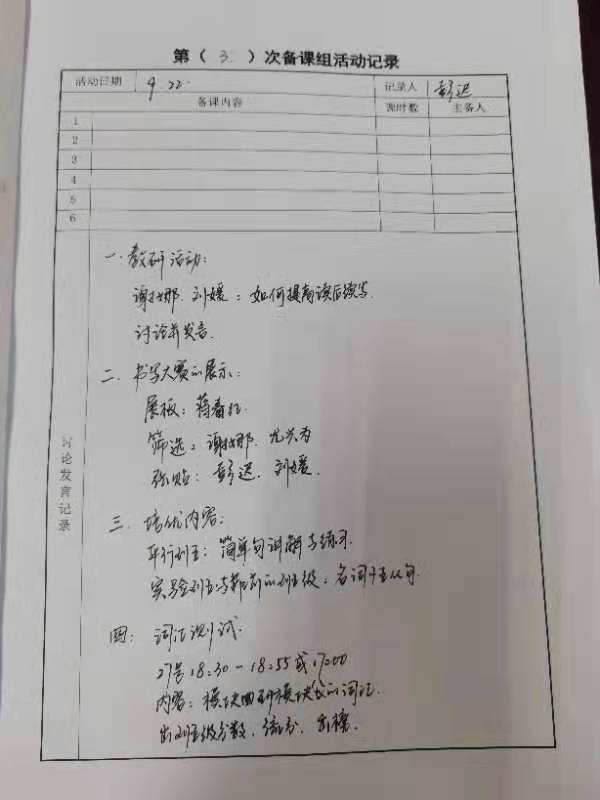 第（ 3 ）次备课组活动记录
活动日期 9.22. 记录人 彭迟
备课内容 课时数 主备人
1
2
3
4
5
6
讨论发言记录
一.教研活动:
谢娜. 刘媛：如何提高读后续写.
讨论并发言.
二. 书写大赛的展示:
展板：蒋春红.
筛选：谢娜.
张贴：彭迟、刘媛.
三. 培优内容:
平行班：简单句讲解与练习.
实验班与靠前的班级：名词性从句.
四: 词汇测试.
27号18:30-18:55或
内容：模块四和模块的词汇.
出班级分数、